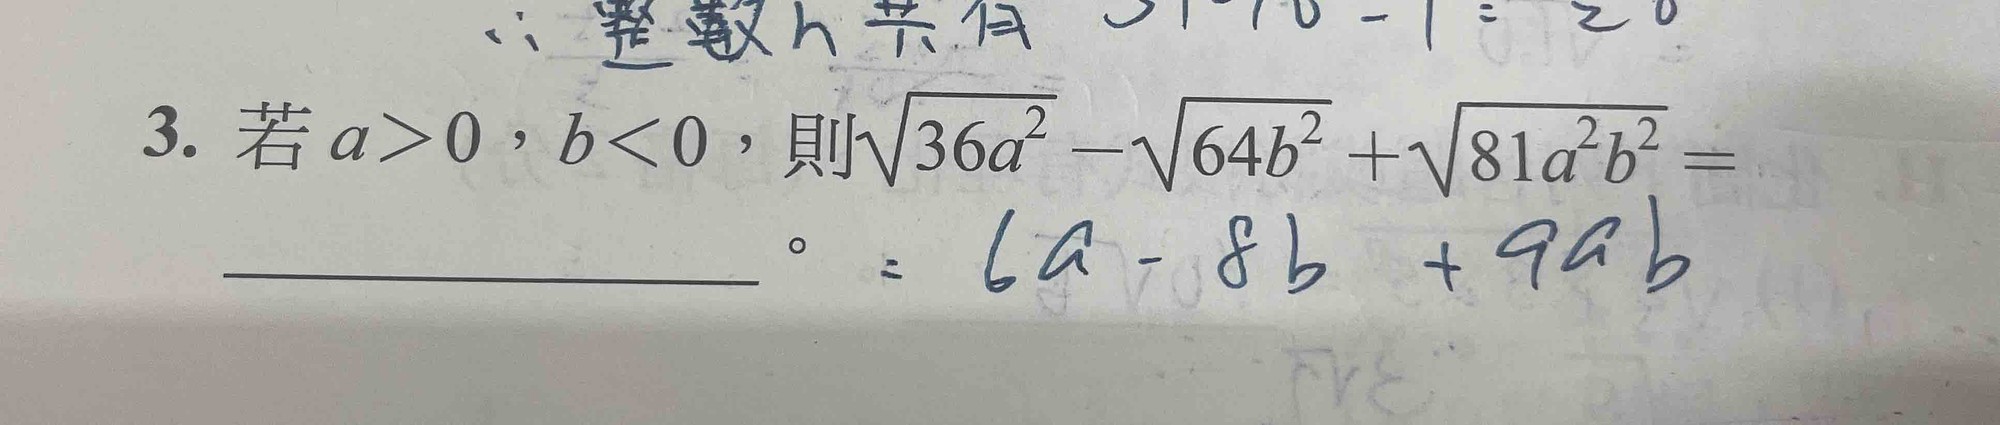 ∴ 整數n共有
3. 若 a>0，b<0，則√36a² −√64b² +√81a²b² =
________。 = 6a - 8b + 9ab